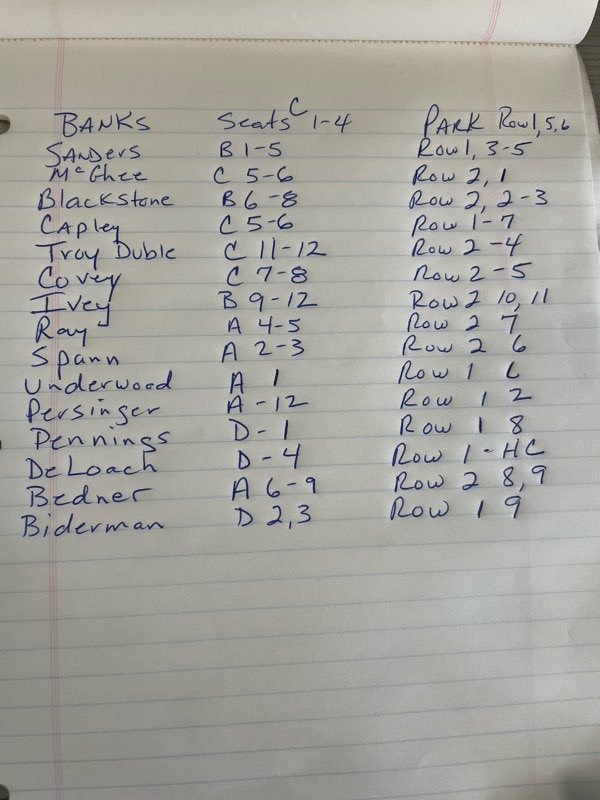 BANKS Seats C 1-4 PARK Row 1, 5, 6
SANDERS B 1-5 Row 1, 3-5
McGhee C 5-6 Row 2, 1
Blackstone B 6-8 Row 2, 2-3
CAPley C 5-6 Row 1-7
Troy Duble C 11-12 Row 2-4
Covey C 7-8 Row 2-5
Ivey B 9-12 Row 2 10, 11
Ray A 4-5 Row 2 7
Spann A 2-3 Row 2 6
Underwood A 1 Row 1
Persinger A-12 Row 1 2
Pennings D-1 Row 1 8
DeLoach D-4 Row 1-HC
Bedner A 6-9 Row 2 8, 9
Biderman D 2,3 Row 1 9